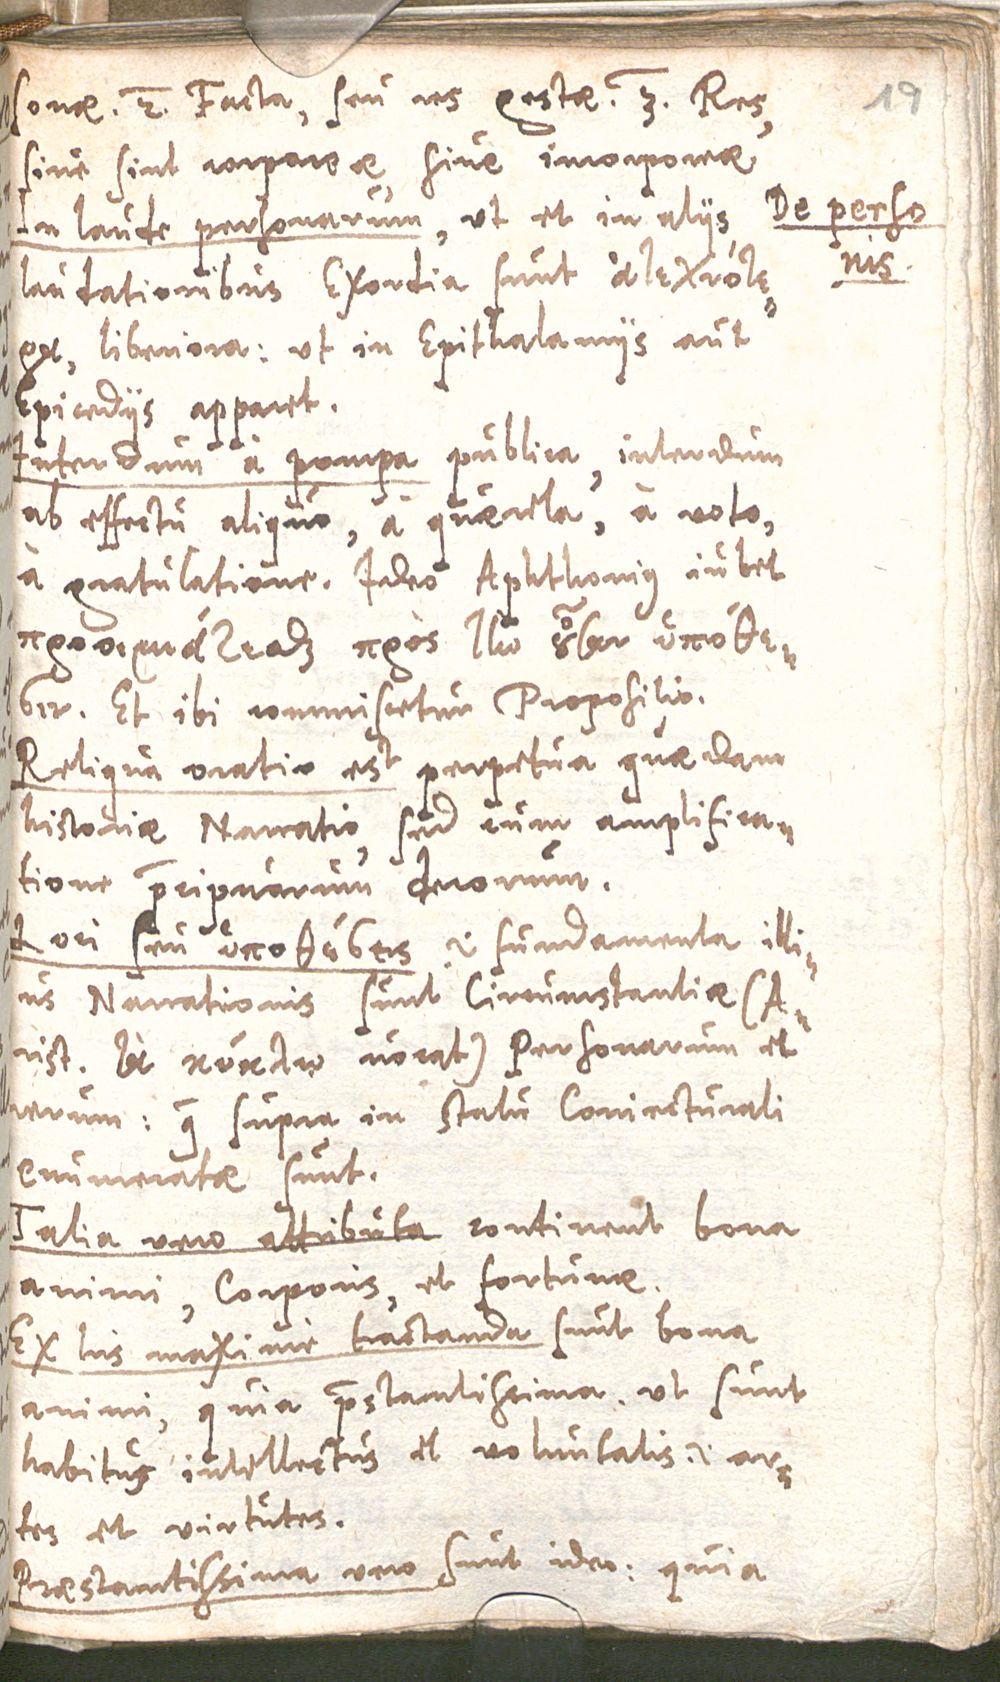 19
sonæ. 2. Facta, seu res gestæ. 3. Res,
sive sint corporeæ, sive incorporeæ
In laude personarum, ut et in alijs
De perso
nis.
laudationibus Exordia sunt ἀτεχνότε
ρα, liberiora: ut in Epithalamijs aut
Epicedijs apparet.
Interdum à pompa publica, interdum
ab effectu aliquo, à querela, à voto,
à gratulatione. Ideo Aphthonig iubet
προοιμιάζεσθαι πρὸς τὴν οὖσαν ὑπόθε„
σιν. Et ibi commiscetur Propositio.
Reliqua oratio est perpetua quædam
historiæ Narratio, sed cum amplifica„
tione p̄cipuarum
Loci seu ὑποθέσεις i fundamenta illi„
us Narrationis sunt Circumstantiæ (A„
rist. τὰ κύκλῳ vocat) Personarum et
rerum: q̄ supra in statu Coniecturali
enumeratæ sunt.
Talia vero attributa continent bona
animi, Corporis, et fortunæ.
Ex his maximè tractanda sunt bona
animi, quia p̄stantissima. ut sunt
habitus intellectus et voluntatis. i ar„
tes et virtutes.
Præstantissima vero sunt ideo: quia